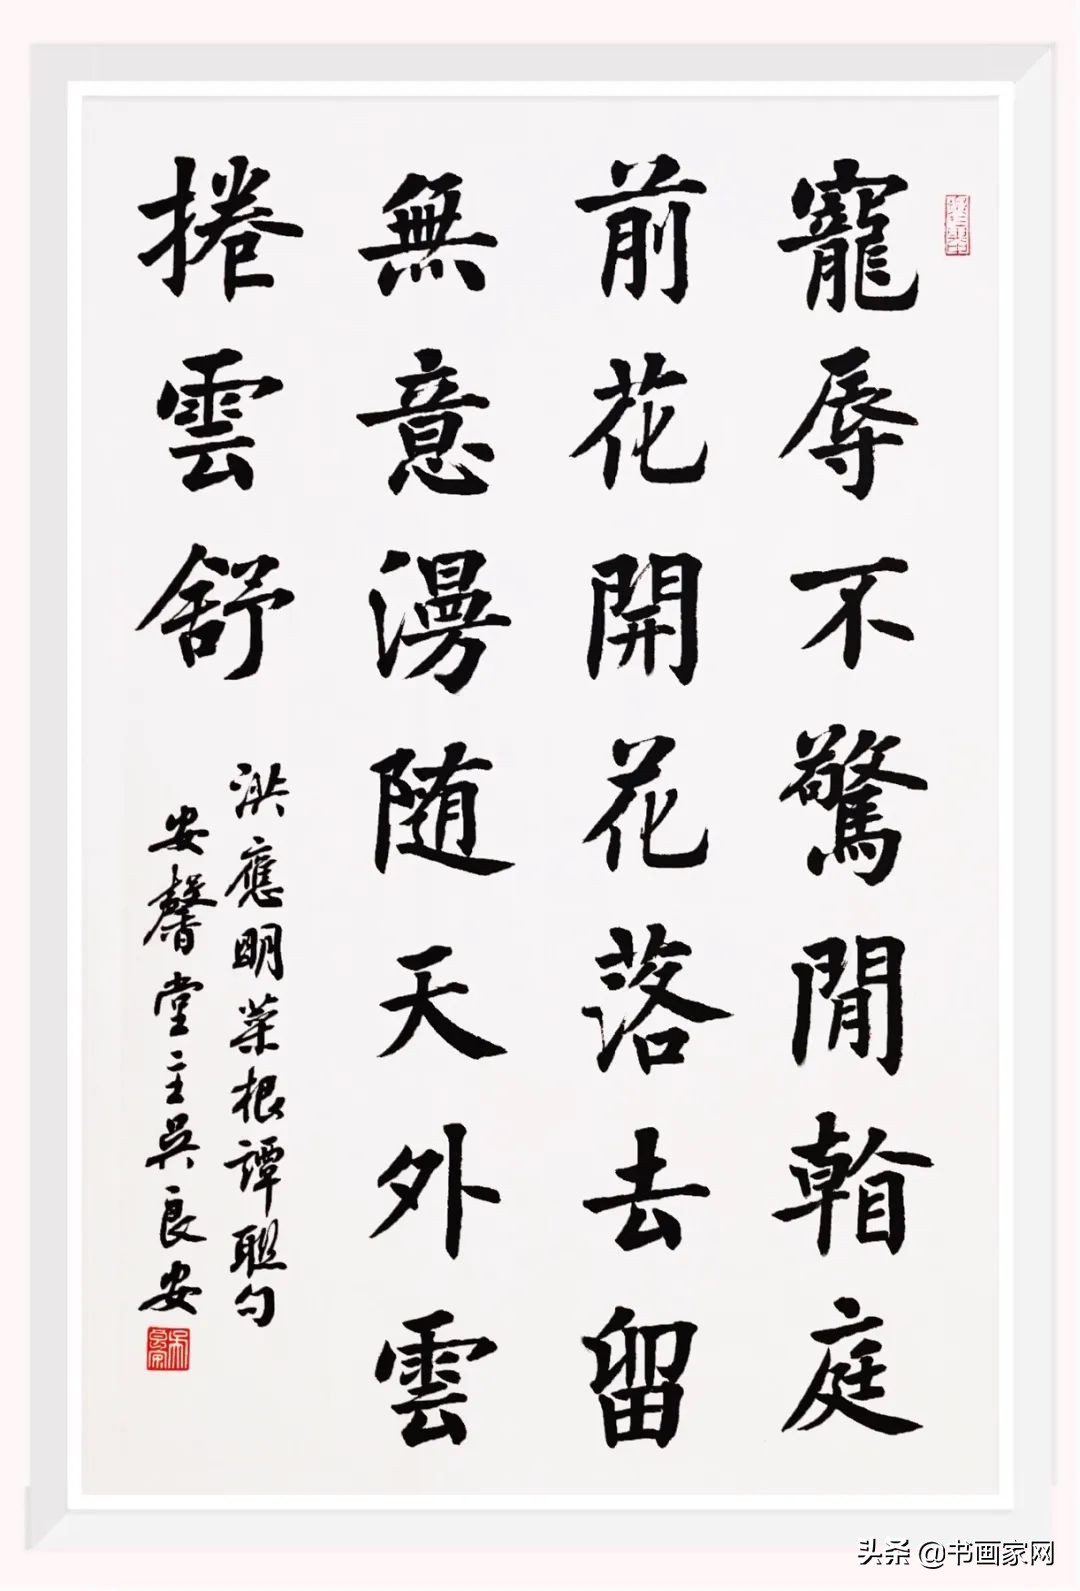 寵辱不驚閒庭
前花開花落去留
無意漫随天外雲
捲雲舒
洪應明菜根譚聯句
安馨堂主吳良安
头条 @书画家网